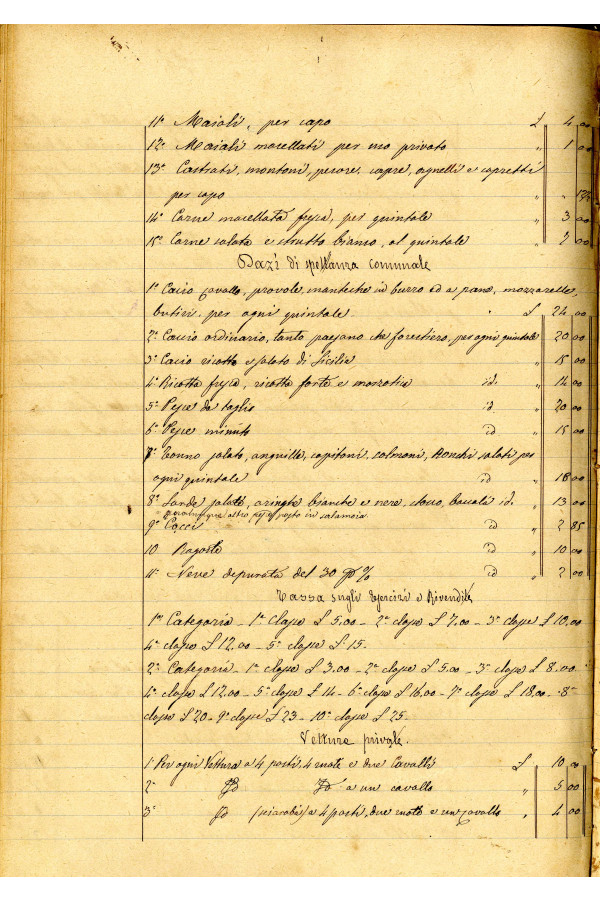 11° Maiali, per capo £ 4 00
12° Maiali macellati per uso privato " 1 00
13° Castrati, montoni, pecore, capre, agnelli e capretti
per capo " "
14° Carne macellata fresca, per quintale " 3 00
15° Carne salata e strutto bianco, al quintale " 7 00
Dazi di spettanza comunale
1° Cacio cavallo, provole, manteche in burro ed a pane, mozzarelle,
butiri, per ogni quintale £ 24 00
2° Cacio ordinario, tanto paesano che forestiero, per ogni quintale 20 00
3° Cacio ricotta e salato di Sicilia " 15 00
4° Ricotta fresca, ricotta forte e marzotica id. " 14 00
5° Pesce da taglio " 20 00
6° Pesce minuto id " 15 00
7° Tonno salato, anguille, capitoni, salmoni, salati per
ogni quintale id " 18 00
8° Sarde salate, aringhe bianche e nere, stocco, baccalà id. " 13 00
e qualunque altro pesce posto in salamoia
9° Cocci id " 2 85
10 Ragoste id " 10 00
11° Neve depurata del 30 p% id " 2 00
Tassa sugli Esercizi e Rivendite
1ma Categoria - 1a classe £ 5,00 - 2a classe £ 7,00 - 3a classe £ 10,00
4a classe £ 12,00 - 5a classe £ 15.
2a Categoria - 1a classe £ 3,00 - 2a classe £ 5,00 - 3a classe £ 8,00
4a classe £ 12,00 - 5a classe £ 14 - 6a classe £ 16,00 - 7a classe £ 18,00 - 8a
classe £ 20 - 9a classe £ 23 - 10a classe £ 25.
Vetture private.
1 Per ogni Vettura a 4 posti, 4 ruote e due Cavalli £ 10 00
2° Id Id a un cavallo " 5 00
3° Id (sciaraba) a 4 posti, due ruote e un cavallo " 4 00